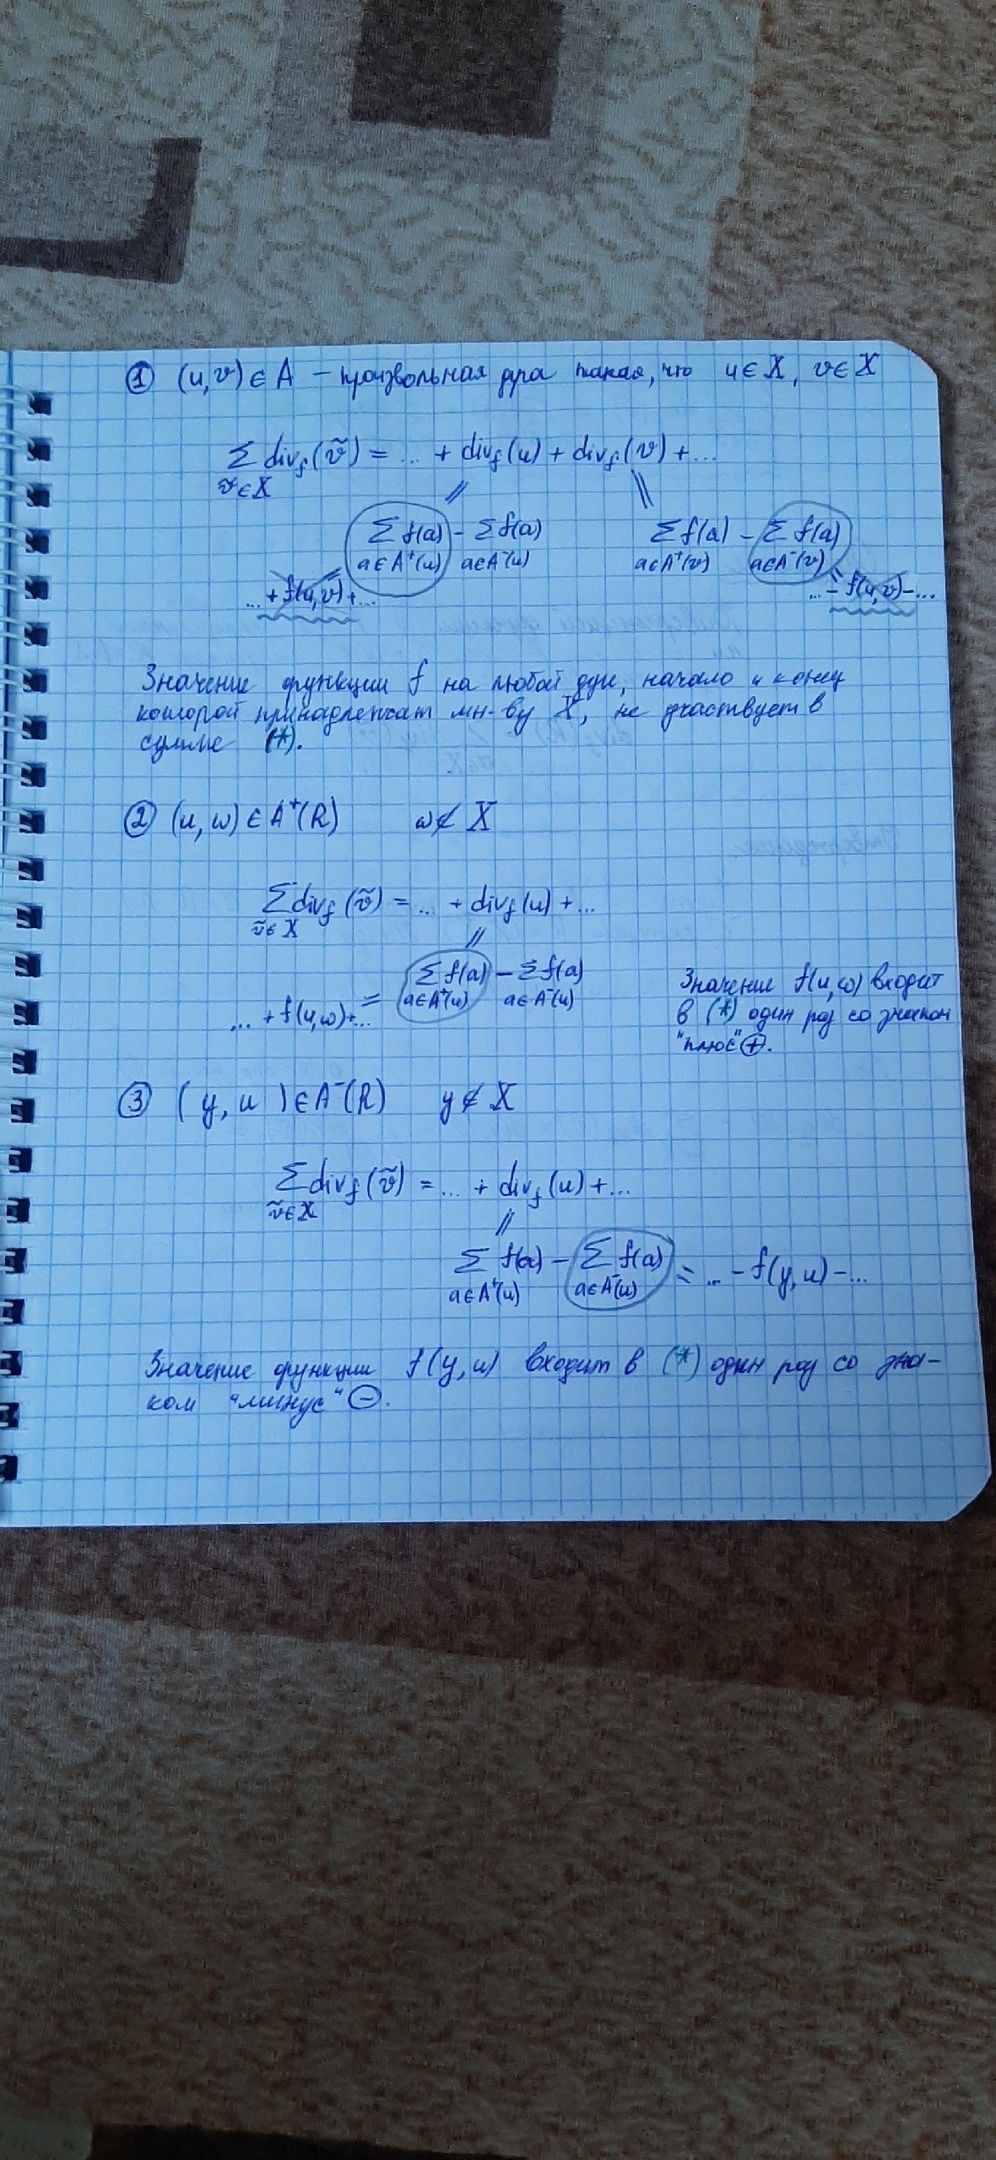 ① (u,v) ∈ A – произвольная дуга такая, что u ∈ X, v ∈ X
∑ div_f(ṽ) = ... + div_f(u) + div_f(v) + ...
ṽ∈X
∑ f(a) – ∑ f(a) ∑ f(a) – ∑ f(a)
a∈A⁺(u) a∈A⁻(u) a∈A⁺(v) a∈A⁻(v)
... + f(u,v) + ... = = ... – f(u,v) – ...
Значение функции f на любой дуге, начало и конец
которой принадлежат мн-ву X, не участвует в
сумме (*).
② (u, w) ∈ A⁺(R) w ∉ X
∑ div_f(ṽ) = ... + div_f(u) + ...
ṽ∈X
∑ f(a) – ∑ f(a)
a∈A⁺(u) a∈A⁻(u)
... + f(u,w) + ... =
Значение f(u,w) входит
в (*) один раз со знаком
"плюс" ⊕.
③ (y, u) ∈ A⁻(R) y ∉ X
∑ div_f(ṽ) = ... + div_f(u) + ...
ṽ∈X
∑ f(a) – ∑ f(a) = ... – f(y,u) – ...
a∈A⁺(u) a∈A⁻(u)
Значение функции f(y,u) входит в (*) один раз со зна-
ком "минус" ⊖.